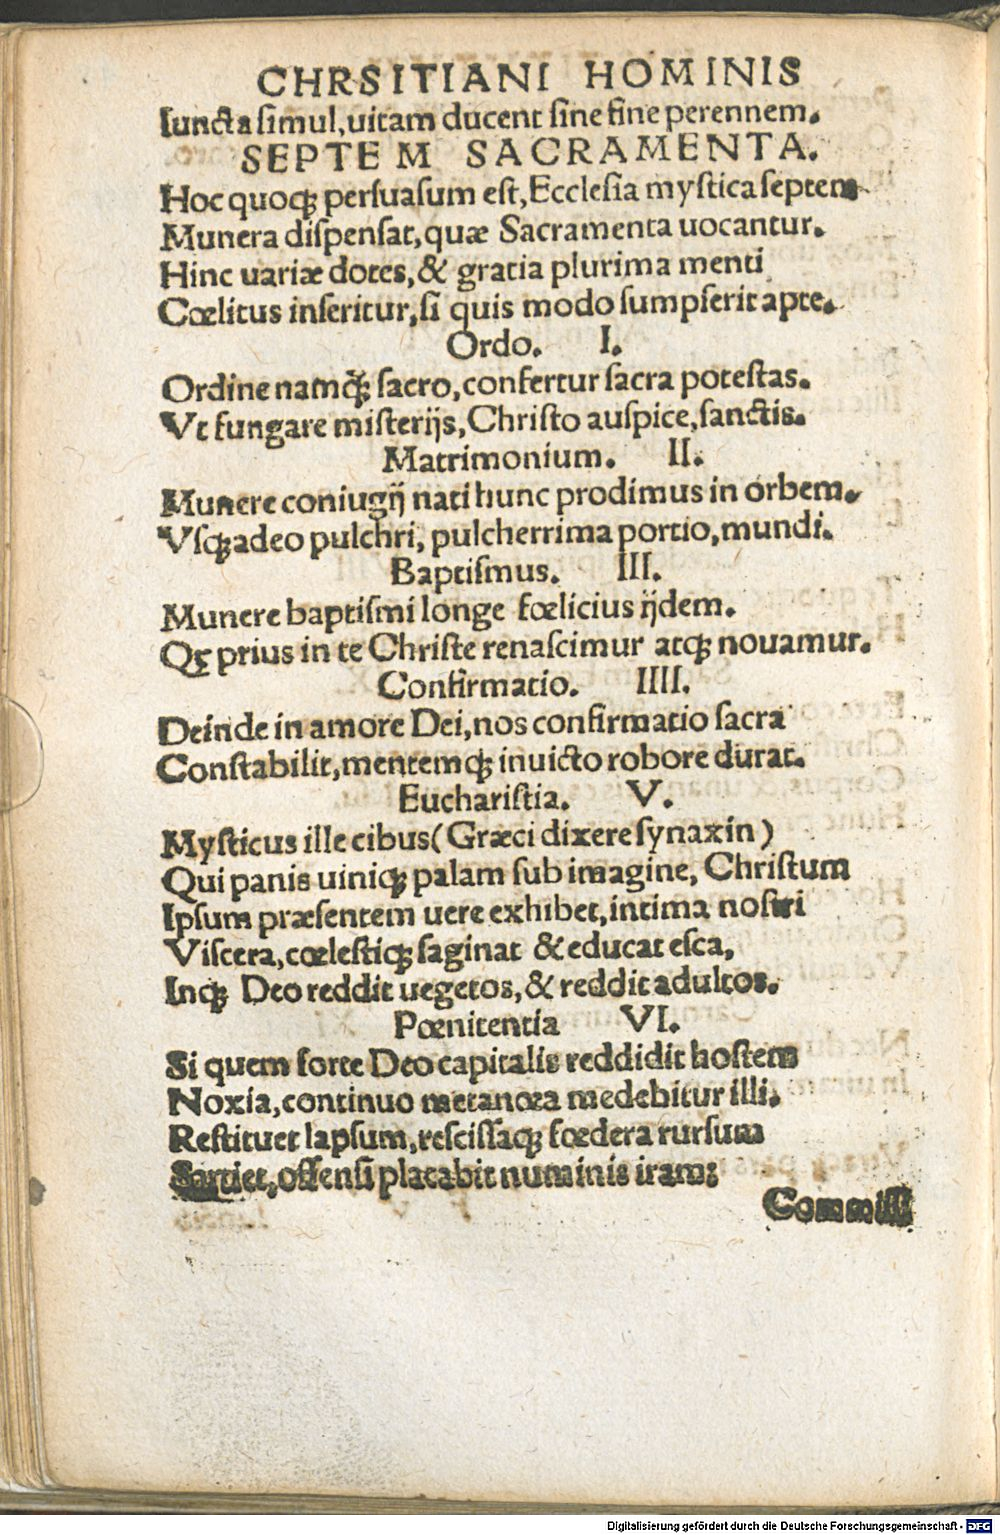 CHRSITIANI HOMINIS
Iuncta simul, uitam ducent sine fine perennem.
SEPTEM SACRAMENTA.
Hoc quoqꝫ persuasum est, Ecclesia mystica septem
Munera dispensat, quæ Sacramenta uocantur.
Hinc uariæ dotes, & gratia plurima menti
Cœlitus inseritur, si quis modo sumpserit apte.
Ordo. I.
Ordine namqꝫ sacro, confertur sacra potestas.
Vt fungare misterijs, Christo auspice, sanctis.
Matrimonium. II.
Munere coniugij nati hunc prodimus in orbem.
Vsqꝫ adeo pulchri, pulcherrima portio, mundi.
Baptismus. III.
Munere baptismi longe fœlicius ijdem.
Qꝫ prius in te Christe renascimur atqꝫ nouamur.
Confirmatio. IIII.
Deinde in amore Dei, nos confirmatio sacra
Constabilit, mentemqꝫ inuicto robore durat.
Eucharistia. V.
Mysticus ille cibus (Græci dixere synaxin)
Qui panis uiniqꝫ palam sub imagine, Christum
Ipsum præsentem uere exhibet, intima nostri
Viscera, cœlestiqꝫ saginat & educat esca,
Inqꝫ Deo reddit uegetos, & reddit adultos.
Pœnitentia VI.
Si quem forte Deo capitalis reddidit hostem
Noxia, continuo metanœa medebitur illi.
Restituet lapsum, rescissaqꝫ fœdera rursum
Sartiet, offensi placabit numinis iram:
Commiss
Digitalisierung gefördert durch die Deutsche Forschungsgemeinschaft - DFG